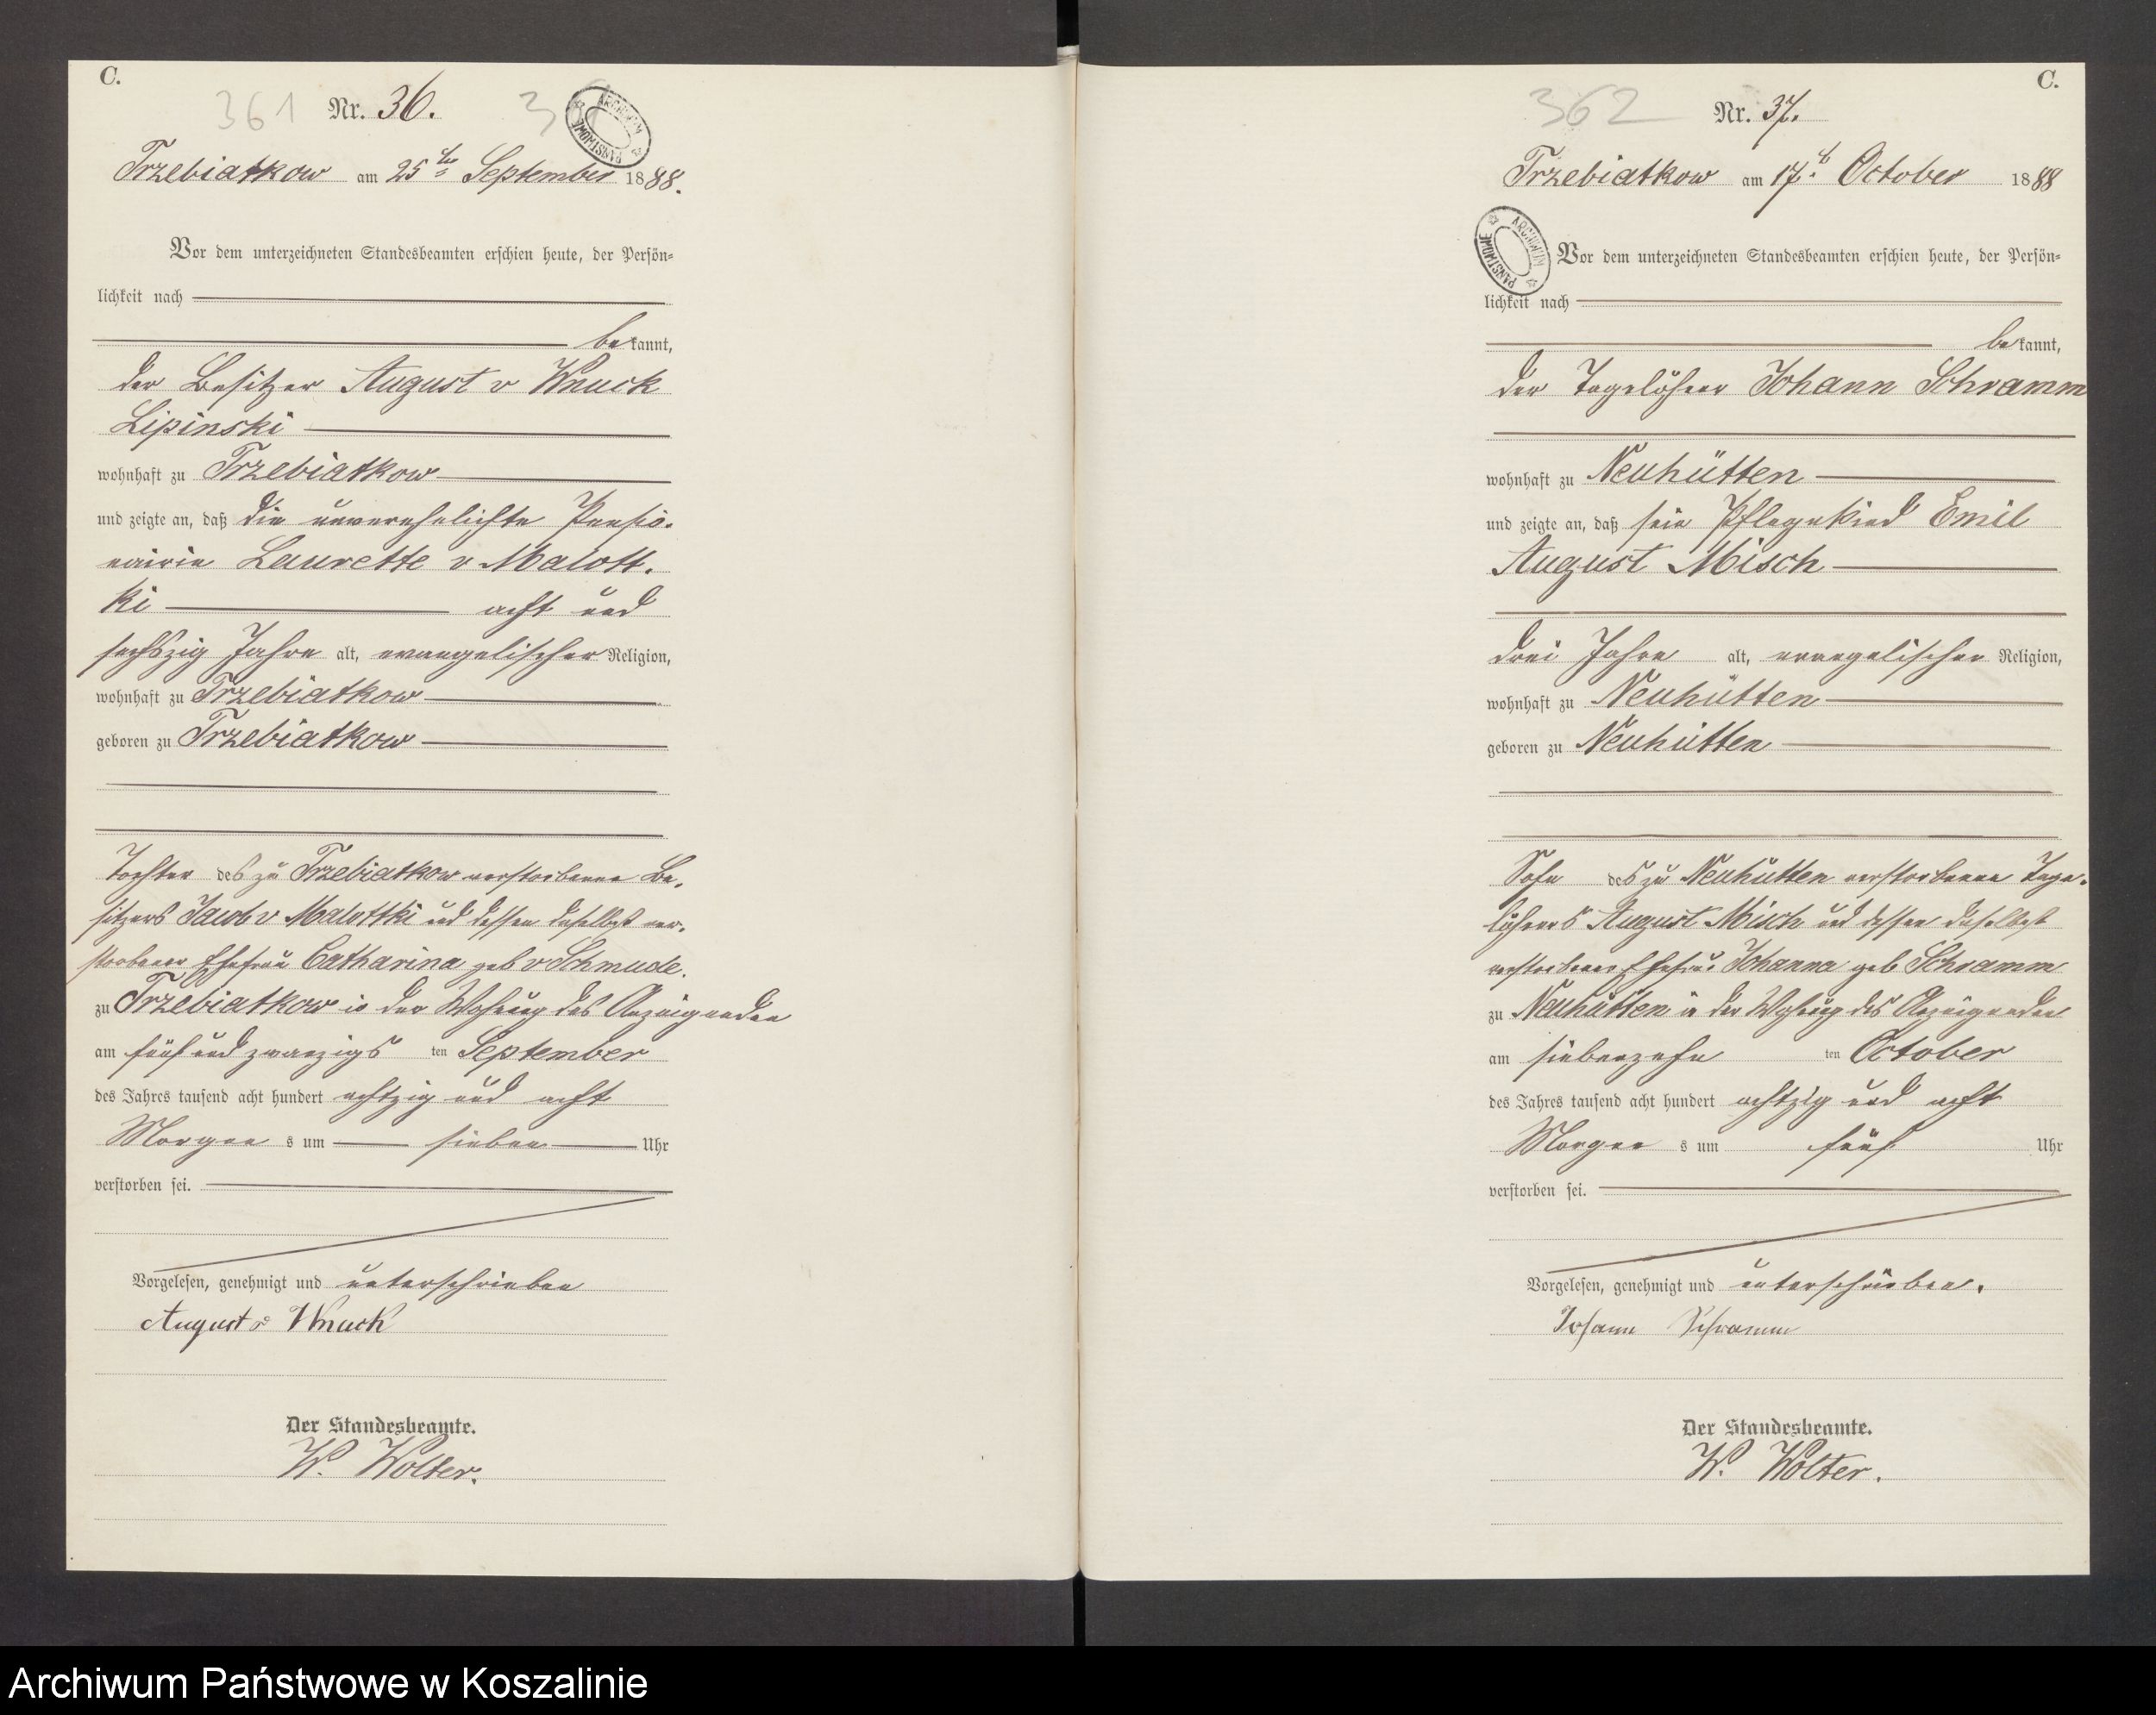 C.
361 Nr. 36.
ARCHIWUM PAŃSTWOWE
Trzebiatkow am 25ten September 1888.
Vor dem unterzeichneten Standesbeamten erschien heute, der Persön-
lichkeit nach
bekannt,
der Besitzer August v Wnuck
Lipinski
wohnhaft zu Trzebiatkow
und zeigte an, daß die unverehelichte Pensio-
nairin Laurette v Malott-
ki acht und
sechszig Jahre alt, evangelischer Religion,
wohnhaft zu Trzebiatkow
geboren zu Trzebiatkow
Tochter des zu Trzebiatkow verstorbenen Be-
sitzers Jacob v Malottki und dessen daselbst ver-
storbenen Ehefrau Catharina geb v Schmude.
zu Trzebiatkow in der Wohnung des Anzeigenden
am fünf und zwanzigsten September
des Jahres tausend acht hundert achtzig und acht
Morgens um sieben Uhr
verstorben sei.
Vorgelesen, genehmigt und unterschrieben
August v Wnuck
Der Standesbeamte.
W. Wolter.
C.
362 Nr. 37.
Trzebiatkow am 17t. October 1888
ARCHIWUM PAŃSTWOWE
Vor dem unterzeichneten Standesbeamten erschien heute, der Persön-
lichkeit nach
bekannt,
der Tagelöhner Johann Schramm
wohnhaft zu Neuhütten
und zeigte an, daß sein Pflegekind Emil
August Misch
drei Jahre alt, evangelischer Religion,
wohnhaft zu Neuhütten
geboren zu Neuhütten
Sohn des zu Neuhütten verstorbenen Tage-
löhners August Misch und dessen daselbst
verstorbenen Ehefrau Johanna geb Schramm
zu Neuhütten in der Wohnung des Anzeigenden
am siebenzehnten October
des Jahres tausend acht hundert achtzig und acht
Morgens um fünf Uhr
verstorben sei.
Vorgelesen, genehmigt und unterschrieben.
Johann Schramm
Der Standesbeamte.
W. Wolter.
Archiwum Państwowe w Koszalinie